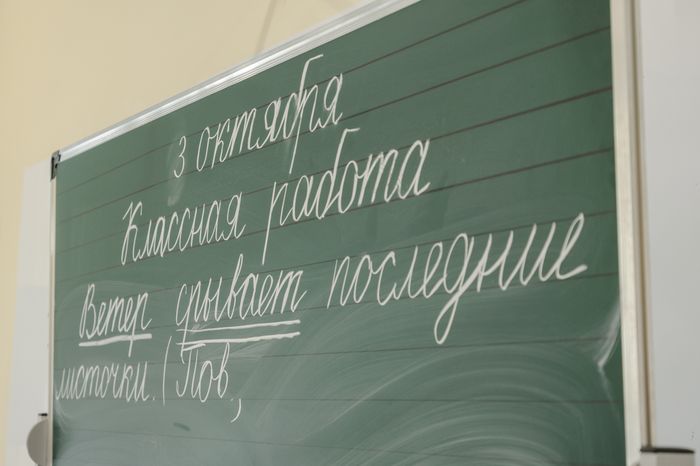 3 октября
Классная работа
Ветер срывает последние
листочки. (Пов.,